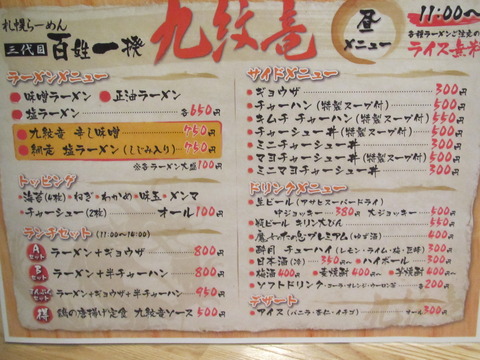 札幌らーめん
三代目 百姓一揆 九紋竜
昼メニュー
11:00~
各種ラーメンご注文の
ライス無料
ラーメンメニュー
味噌ラーメン 正油ラーメン
塩ラーメン 各650円
九紋竜 辛し味噌 750円
網走 塩ラーメン(しじみ入り) 750円
各ラーメン大盛100円
トッピング
海苔(4枚)・ねぎ・わかめ・味玉・メンマ
チャーシュー(2枚) オール100円
ランチセット (11:00~16:00)
Aセット ラーメン+ギョウザ 800円
Bセット ラーメン+半チャーハン 800円
セット ラーメン+ギョウザ+半チャーハン 950円
鶏の唐揚げ定食 九紋竜ソース 500円
サイドメニュー
ギョウザ 300円
チャーハン(特製スープ付) 500円
キムチチャーハン(特製スープ付) 550円
チャーシュー丼(特製スープ付) 500円
ミニチャーシュー丼 300円
マヨチャーシュー丼(特製スープ付) 500円
ミニマヨチャーシュー丼 300円
ドリンクメニュー
生ビール(アサヒスーパードライ)
中ジョッキー380円 大ジョッキー 500円
瓶ビール キリン大びん 550円
プレミアム(ゆず酒) 400円
チューハイ(レモン・ライム・梅・ 300円
日本酒(冷) 350円~ ハイボール 300円
梅酒400円 麦焼酎400円~ 芋焼酎400円~
ソフトドリンク・コーラ・オレンジ・ウーロン茶 200円
デザート
アイス(バニラ・杏仁・イチゴ) オール300円